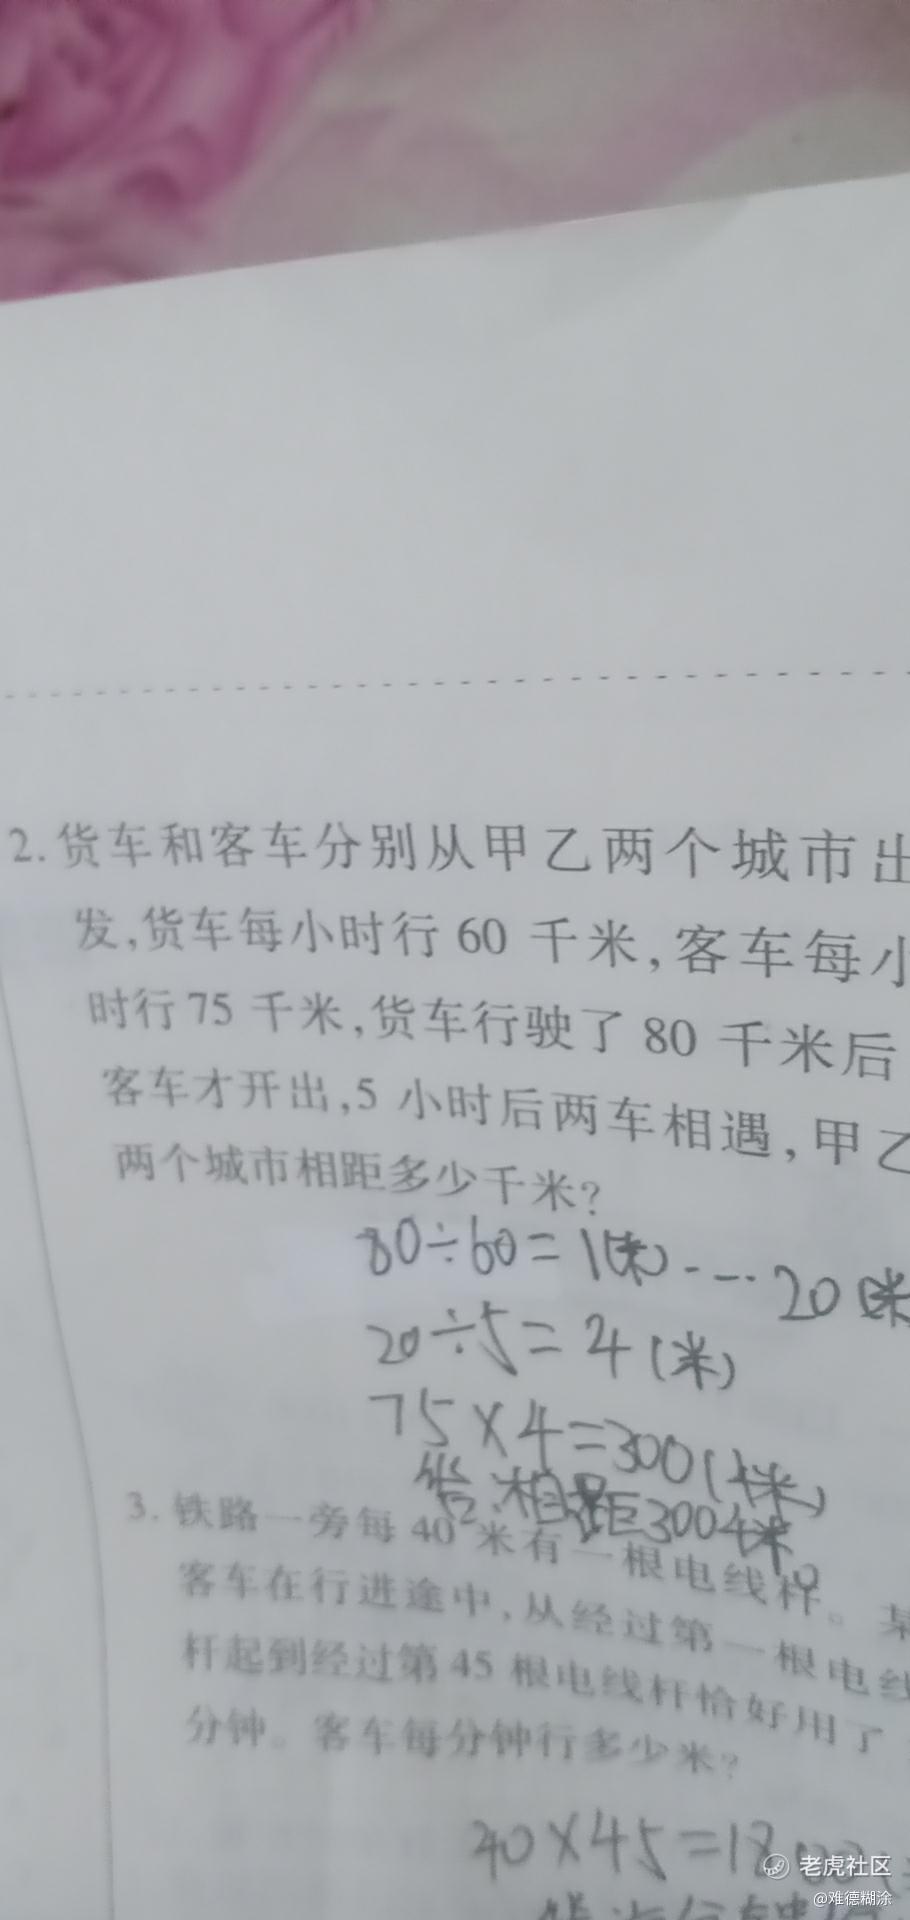 2.货车和客车分别从甲乙两个城市出
发,货车每小时行60 千米,客车每小
时行75 千米,货车行驶了 80 千米后
客车才开出,5 小时后两车相遇,甲乙
两个城市相距多少千米?
80÷60=1(米)……20(米
20÷5=4(米)
75×4=300(千米)
答:相距300千米
3.铁路一旁每 40 米有一根电线杆。某
客车在行进途中,从经过第一根电线
杆起到经过第 45 根电线杆恰好用了
分钟。客车每分钟行多少米?
40×45=18
老虎社区
@难德糊涂